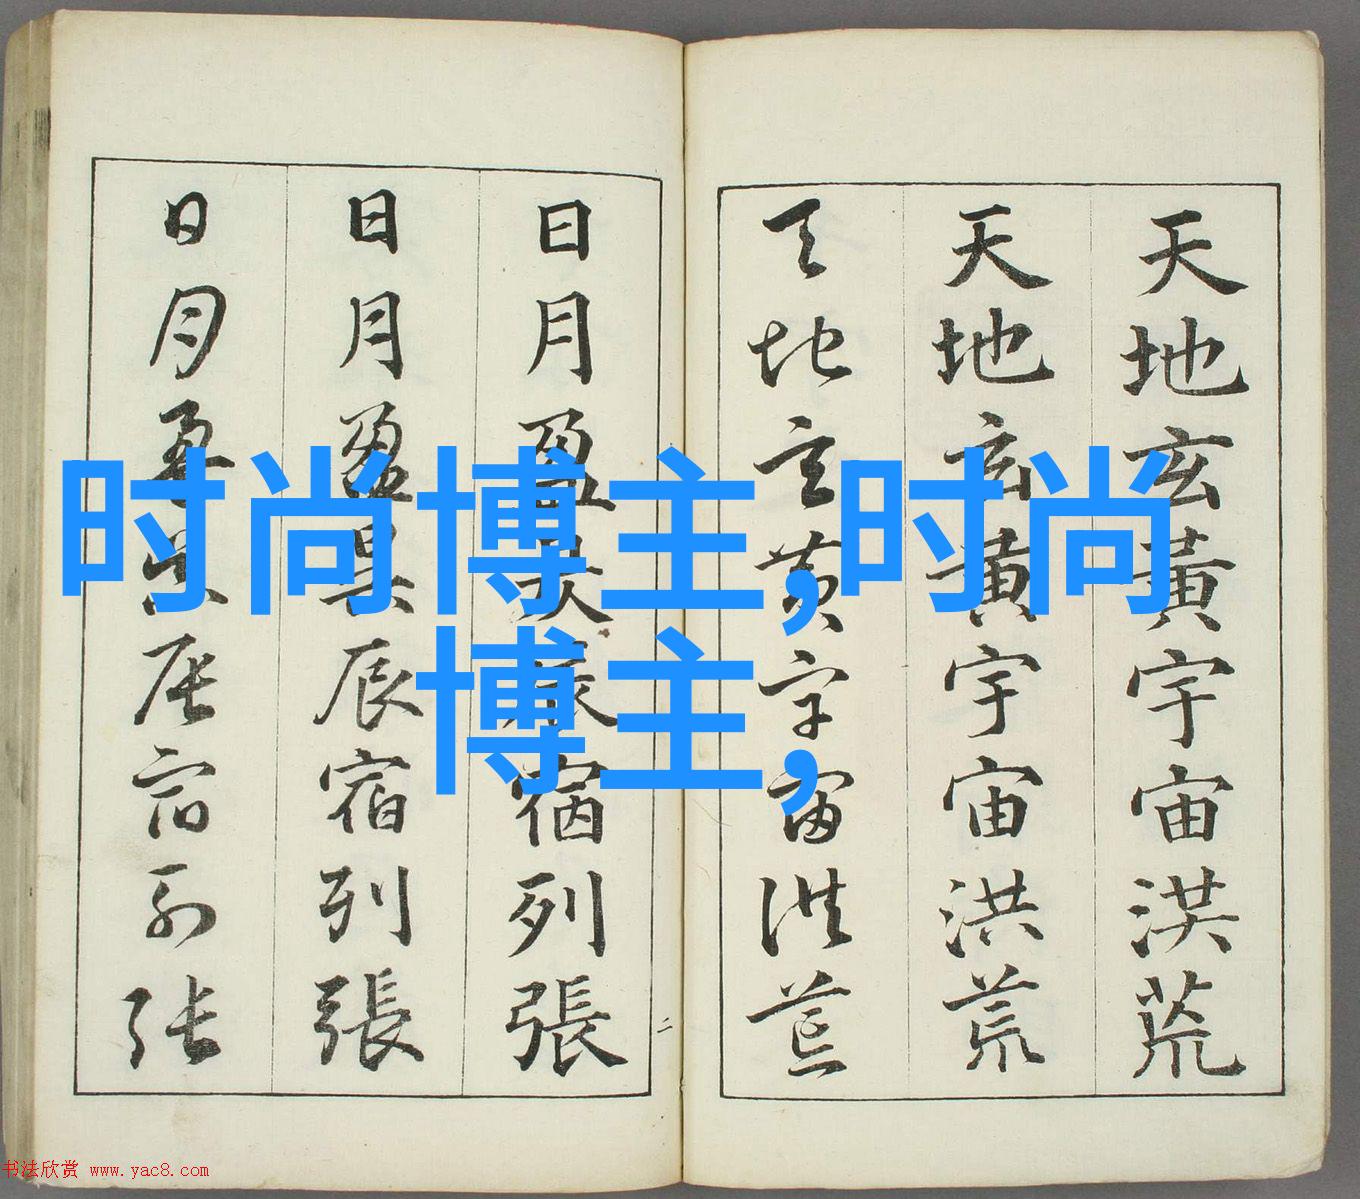 天地玄黃宇宙洪荒
天地玄黃宇宙洪荒
天地玄黃宇宙洪荒
日月盈昃辰宿列張
日月盈昃辰宿列張
日月盈昃辰宿列張
二
时尚博主,时尚
博主,
书法欣赏 www.yac8.com